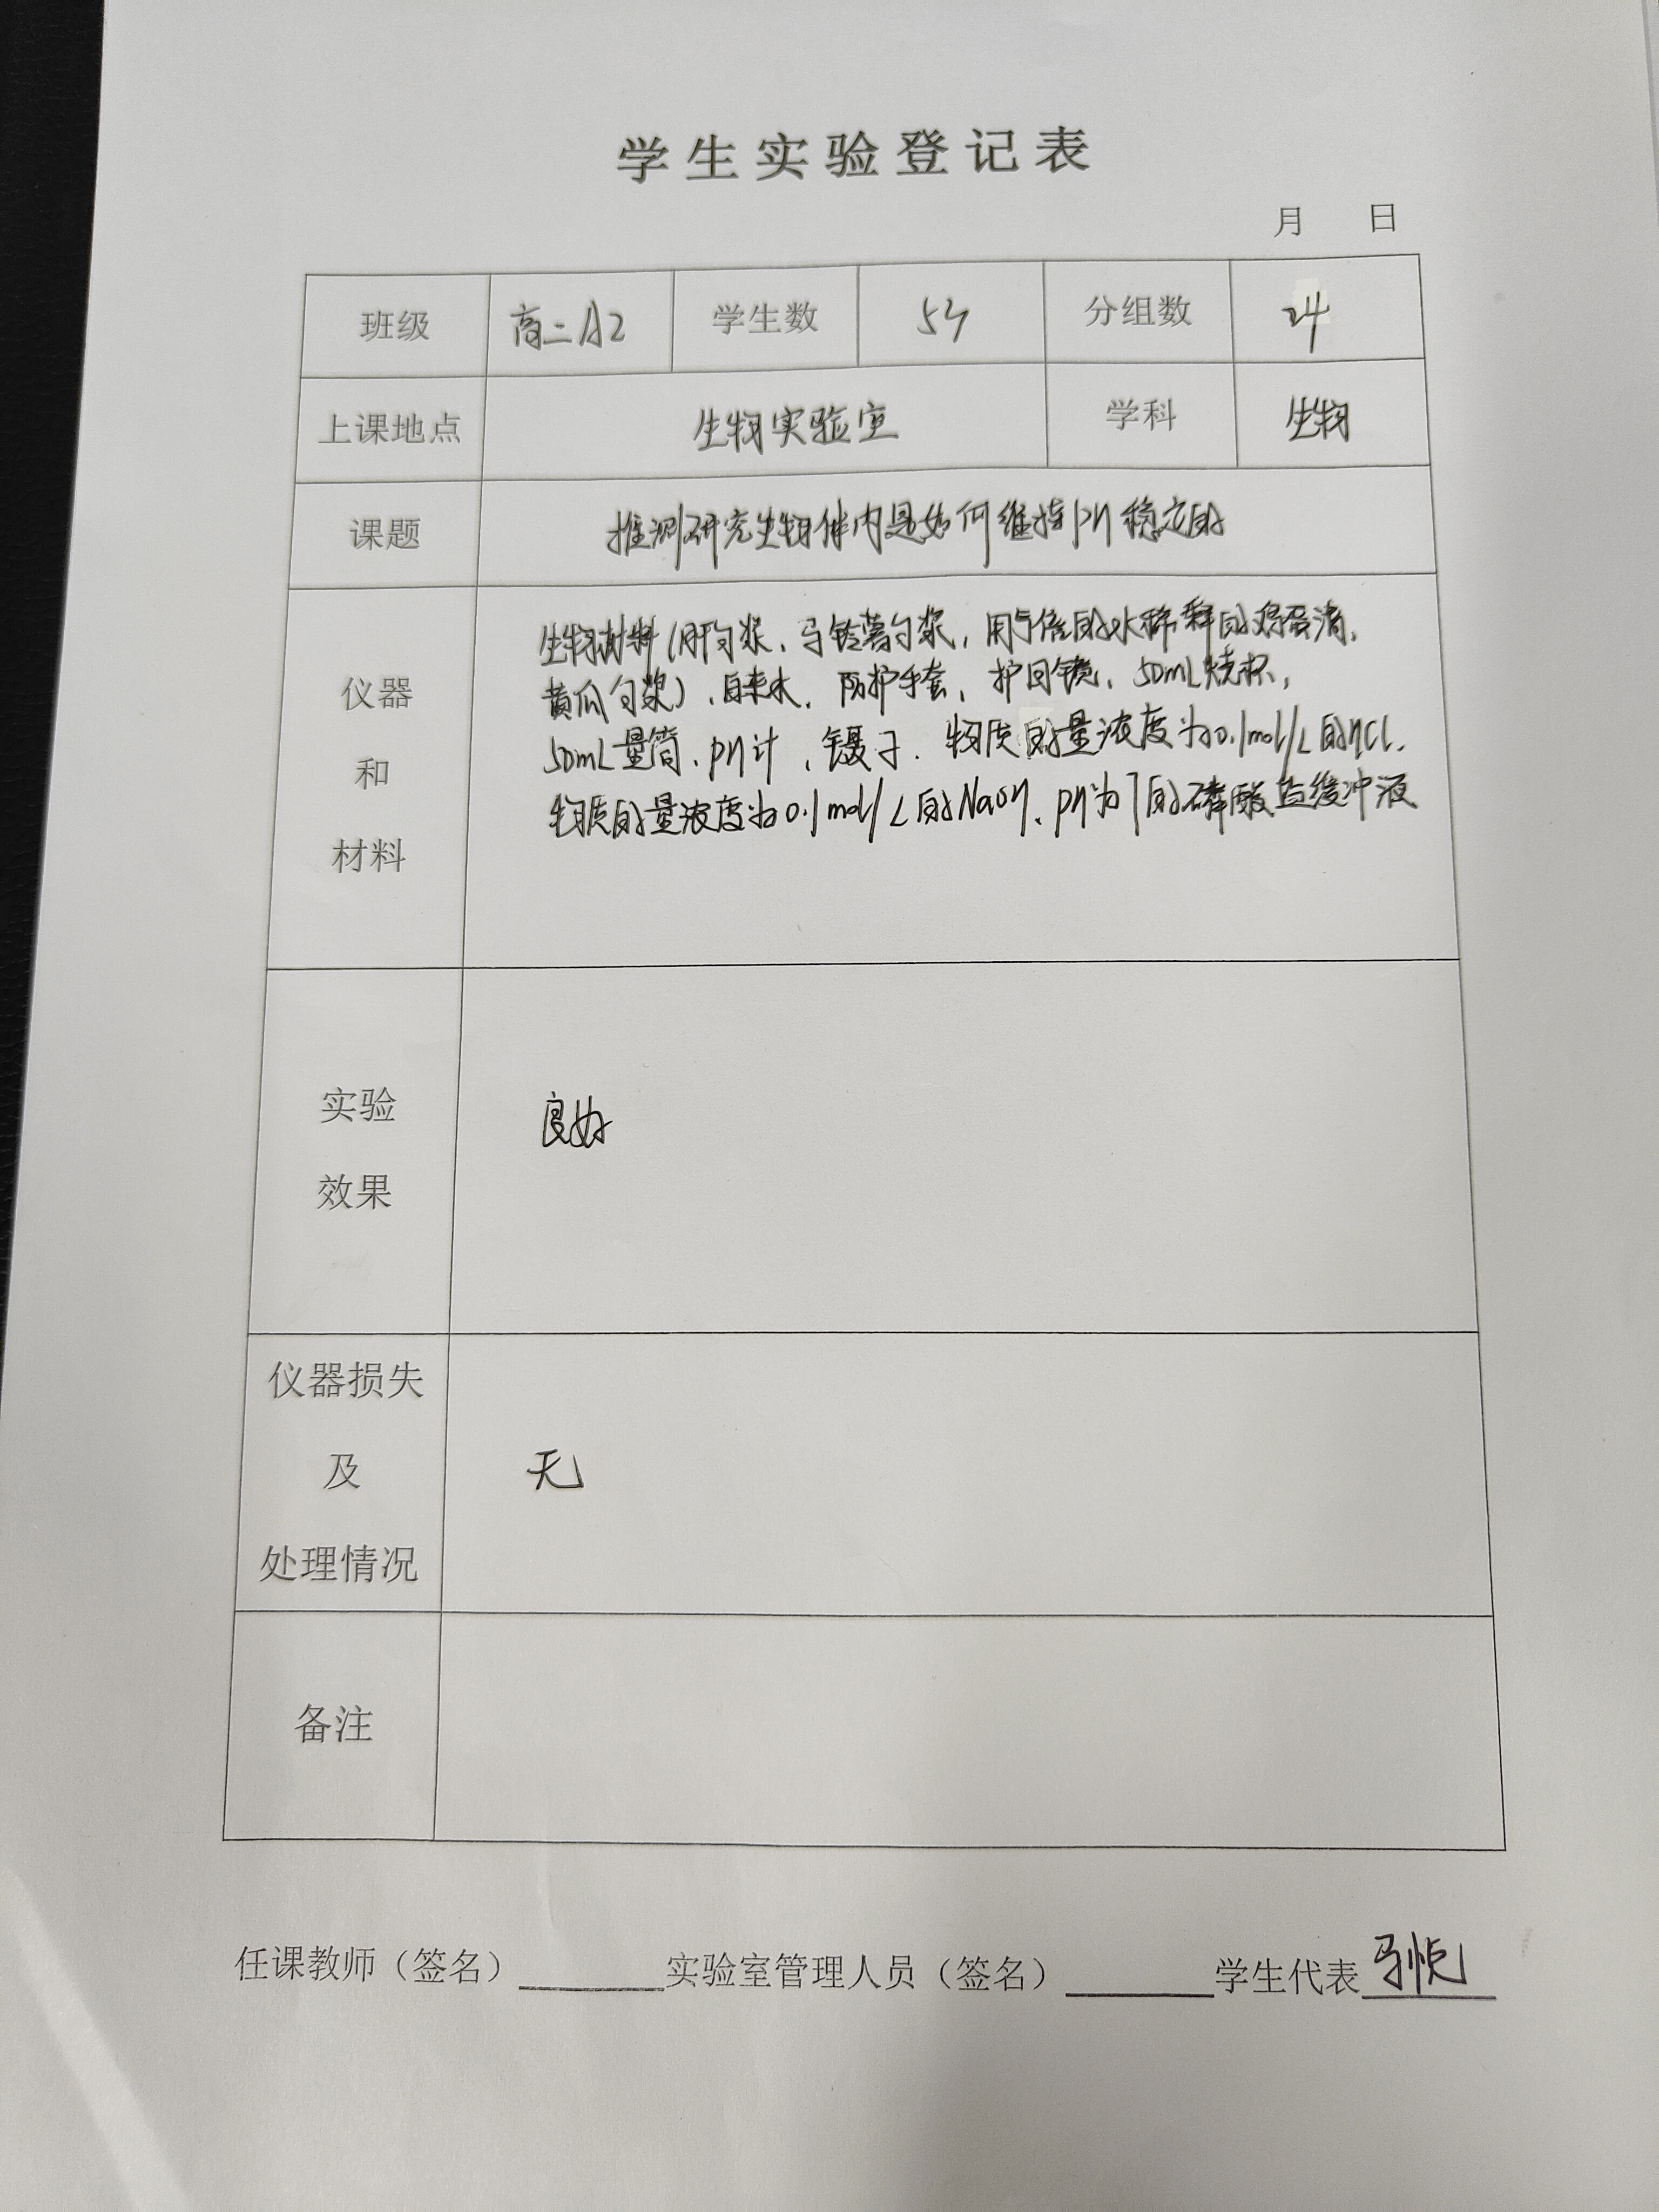 学生实验登记表
月 日
班级 高二A2 学生数 54 分组数 24
上课地点 生物实验室 学科 生物
课题 推测研究生物体内是如何维持pH稳定的
仪器
和
材料
生物材料(肝匀浆、马铃薯匀浆,用5倍的水稀释的鸡蛋清、
黄瓜匀浆)、自来水、防护手套、护目镜、50mL烧杯,
50mL量筒、pH计、镊子、物质的量浓度为0.1mol/L的HCl、
物质的量浓度为0.1mol/L的NaOH、pH为7的磷酸盐缓冲液
实验
效果
良好
仪器损失
及
处理情况
无
备注
任课教师(签名)______实验室管理人员(签名)______学生代表马悦